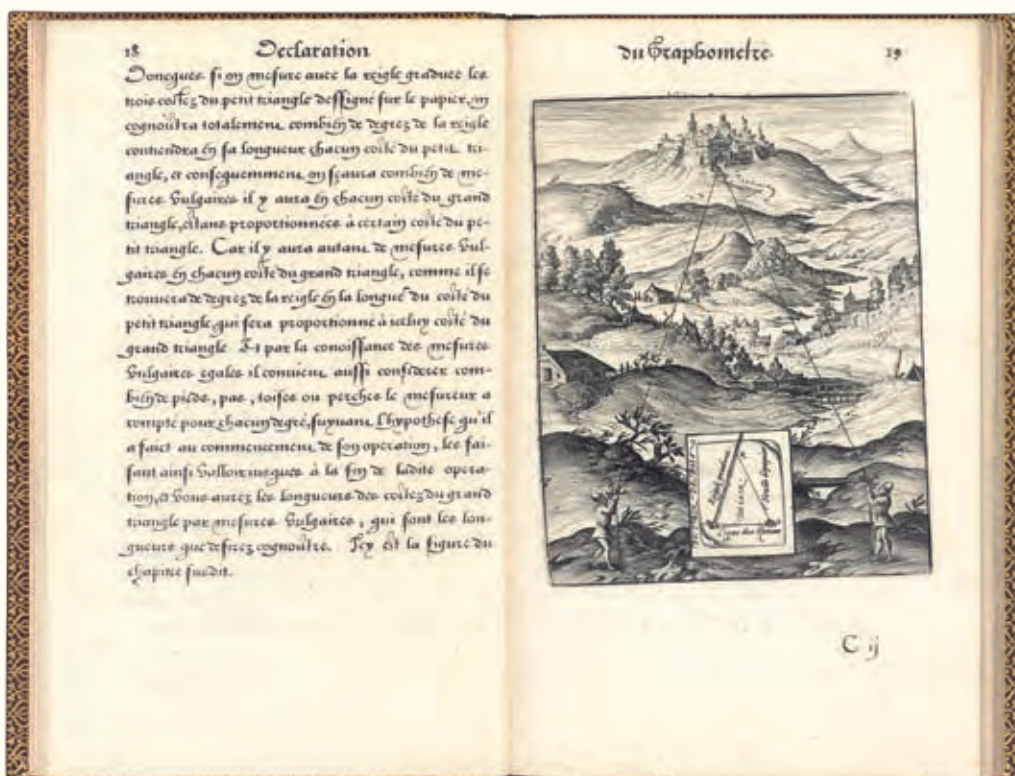 18 Declaration
Doncques si on mesure avec la reigle graduee les
trois costez du petit triangle desseigné sur le papier, on
cognoistra totalement combien de degrez de la reigle
contiendra en sa longueur chacun costé du petit tri-
angle, et consequemment on sçaura combien de me-
sures vulgaires il y aura en chacun costé du grand
triangle, estans proportionnees à certain costé du pe-
tit triangle. Car il y aura autant de mesures vul-
gaires en chacun costé du grand triangle, comme il se
trouvera de degrez de la reigle en la longue du costé du
petit triangle qui sera proportionne à iceluy costé du
grand triangle Et par la conoissance des mesures
vulgaires egales il convient aussi considerer com-
bien de pieds, pas, toises ou perches le mesureur a
compté pour chacun degré, suyvant l'hypothese qu'il
a faict au commencement de son operation, les fai-
sant ainsi valloir iusques à la fin de ladite opera-
tion, et vous aurez les longueurs des costez du grand
triangle par mesures vulgaires, qui sont les lon-
gueurs que desirez cognoistre. Icy est la figure du
chapitre susdit.
du Graphometre 19
Ligne des stations
C ij